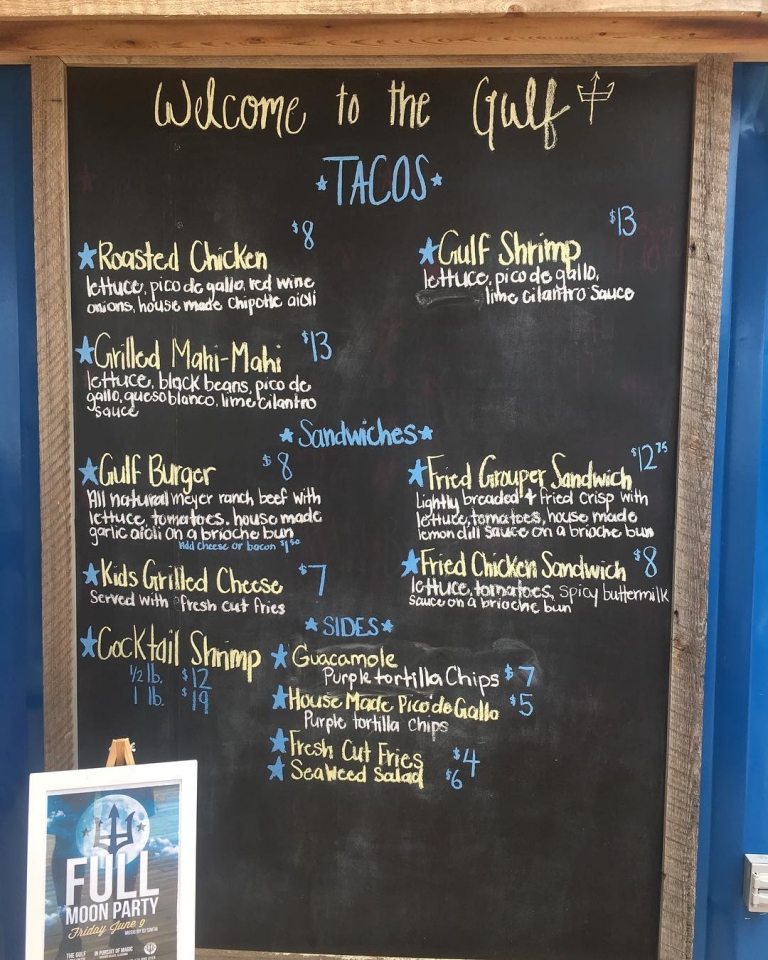 Welcome to the Gulf
TACOS
Roasted Chicken $8
lettuce, pico de gallo, red wine
onions, house made chipotle aioli
Gulf Shrimp $13
lettuce, pico de gallo,
lime cilantro sauce
Grilled Mahi-Mahi $13
lettuce, black beans, pico de
gallo, queso blanco, lime cilantro
sauce
Sandwiches
Gulf Burger $8
All natural meyer ranch beef with
lettuce, tomatoes, house made
garlic aioli on a brioche bun
Add cheese or bacon $1.50
Fried Grouper Sandwich $12.75
Lightly breaded & fried crisp with
lettuce, tomatoes, house made
lemon dill sauce on a brioche bun
Kids Grilled Cheese $7
Served with fresh cut fries
Fried Chicken Sandwich $8
lettuce, tomatoes, spicy buttermilk
sauce on a brioche bun
Cocktail Shrimp
1/2 lb. $12
1 lb. $19
SIDES
Guacamole
Purple tortilla Chips $7
House Made Pico de Gallo $5
Purple tortilla chips
Fresh Cut Fries $4
Seaweed Salad $6
FULL
MOON PARTY
Friday June 9
THE GULF
IN PURSUIT OF MAGIC